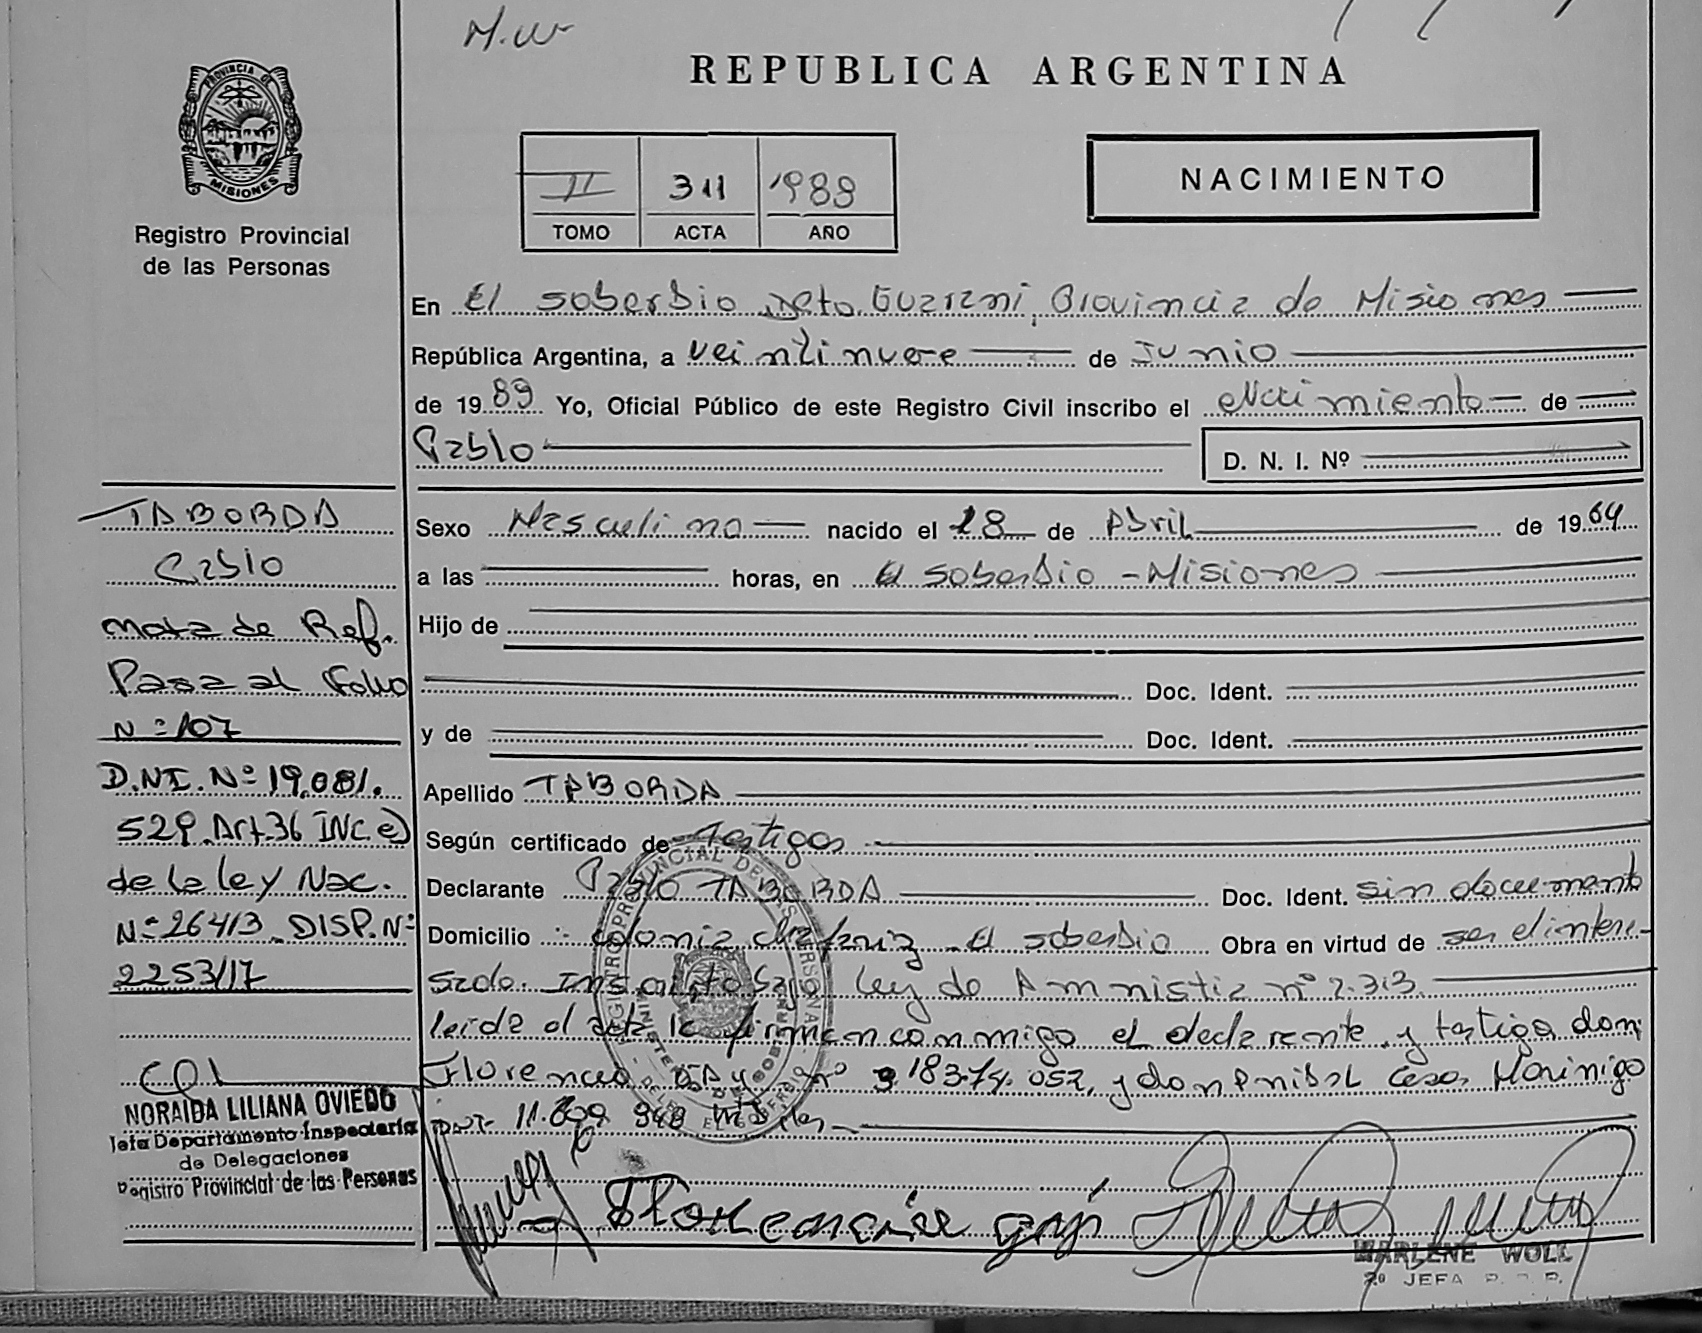 M.W
REPUBLICA ARGENTINA
PROVINCIA DE
MISIONES
Registro Provincial
de las Personas
II 311 1989
TOMO ACTA AÑO
NACIMIENTO
En El Soberbio Dcto. Guarani, Provincia de Misiones
República Argentina, a veintinueve de Junio
de 1989 Yo, Oficial Público de este Registro Civil inscribo el Nacimiento de
Pablo
D. N. I. Nº
TABORDA
Pablo
nota de Ref.
Pasa al Folio
Nº 107
D.N.I. Nº 19.081.
529. Art. 36 INC e)
de la ley Nac.
Nº 26413 DISP. Nº
2253/17
NORAIDA LILIANA OVIEDO
Jefa Departamento Inspectoría
de Delegaciones
Registro Provincial de las Personas
Sexo Masculino nacido el 28 de Abril de 1964
a las horas, en El Soberbio - Misiones
Hijo de
Doc. Ident.
y de Doc. Ident.
Apellido TABORDA
Según certificado de Testigos
Declarante Pablo TABORDA Doc. Ident. sin documento
Domicilio Colonia El Soberbio Obra en virtud de ser el intere-
sado. Inscripto bajo Ley de Amnistia nº 2.313.
leida el acta la firman conmigo el declarante y testigo don
Florencio nº 18.374.052, y don Anibal Cesar Morinigo
DNI 11. 948
Florencio
MARLENE WOLL
JEFA R. P. P.